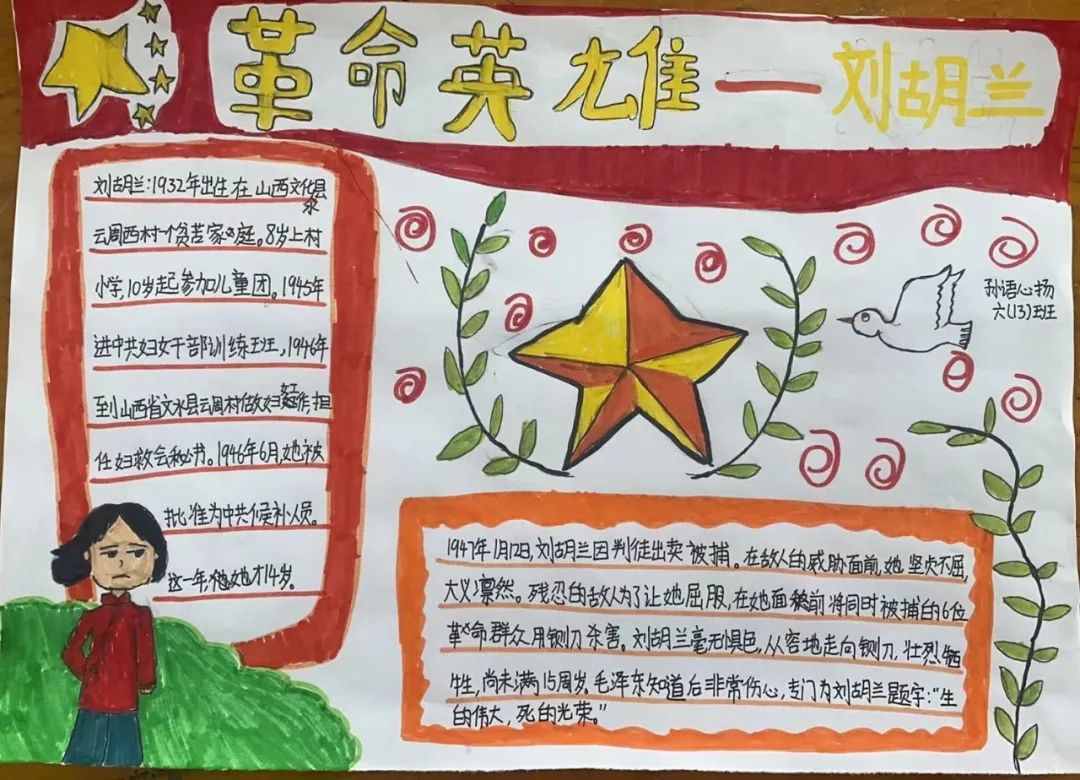 革命英雄——刘胡兰
刘胡兰:1932年出生在山西文水县
云周西村一个贫苦家庭。8岁上村
小学,10岁起参加儿童团。1945年
进中共妇女干部训练班,1946年
到山西省文水县云周村做妇女工作,担
任妇救会秘书。1946年6月,她被
批准为中共候补人员。
这一年她才14岁。
孙语心扬
六(13)班
1947年1月12日,刘胡兰因判徒出卖被捕。在敌人的威胁面前,她坚贞不屈,
大义凛然。残忍的敌人为了让她屈服,在她面前将同时被捕的6位
革命群众用铡刀杀害。刘胡兰毫无惧色,从容地走向铡刀,壮烈牺
牲,尚未满15周岁。毛泽东知道后非常伤心,专门为刘胡兰题字:“生
的伟大,死的光荣。”